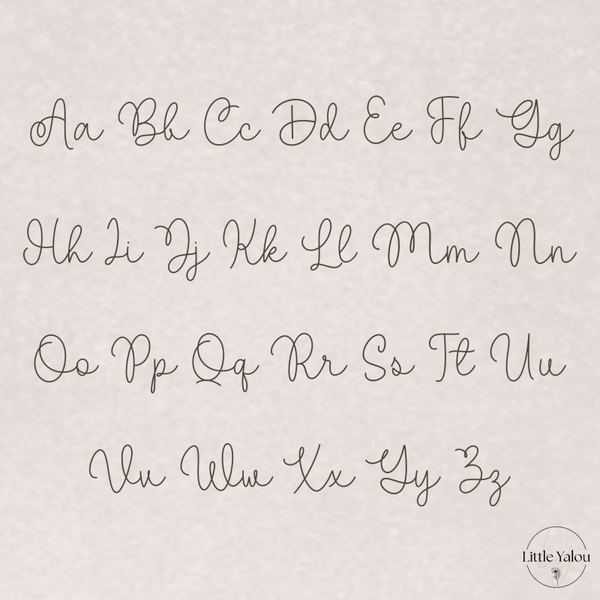 Aa Bb Cc Dd Ee Ff Gg
Hh Ii Jj Kk Ll Mm Nn
Oo Pp Qq Rr Ss Tt Uu
Vv Ww Xx Yy Zz
Little Yalou